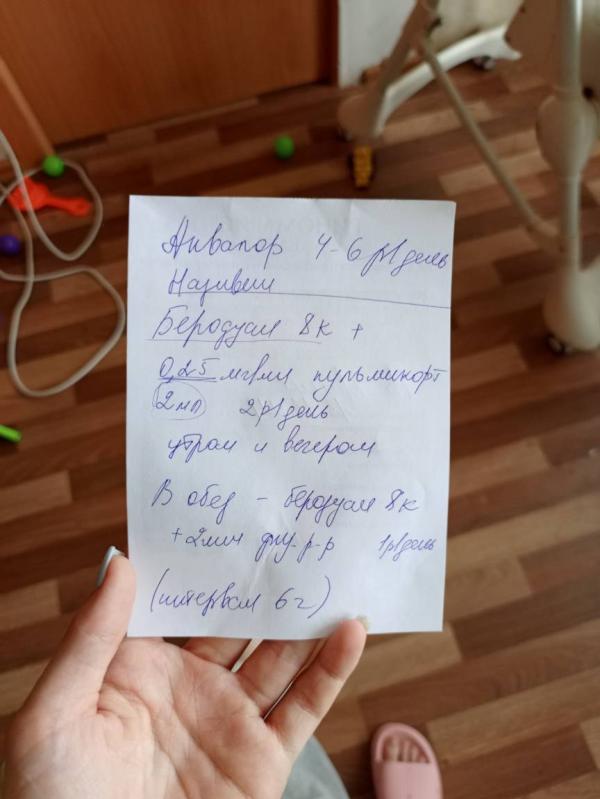 Аквапор 4-6 р/день
Називин
Беродуал 8к +
0,25 мг/мл пульмикорт
2 мл 2р/день
утром и вечером
В обед - беродуал 8к
+ 2мл физ. р-р 1р/день
(интервал 6ч)